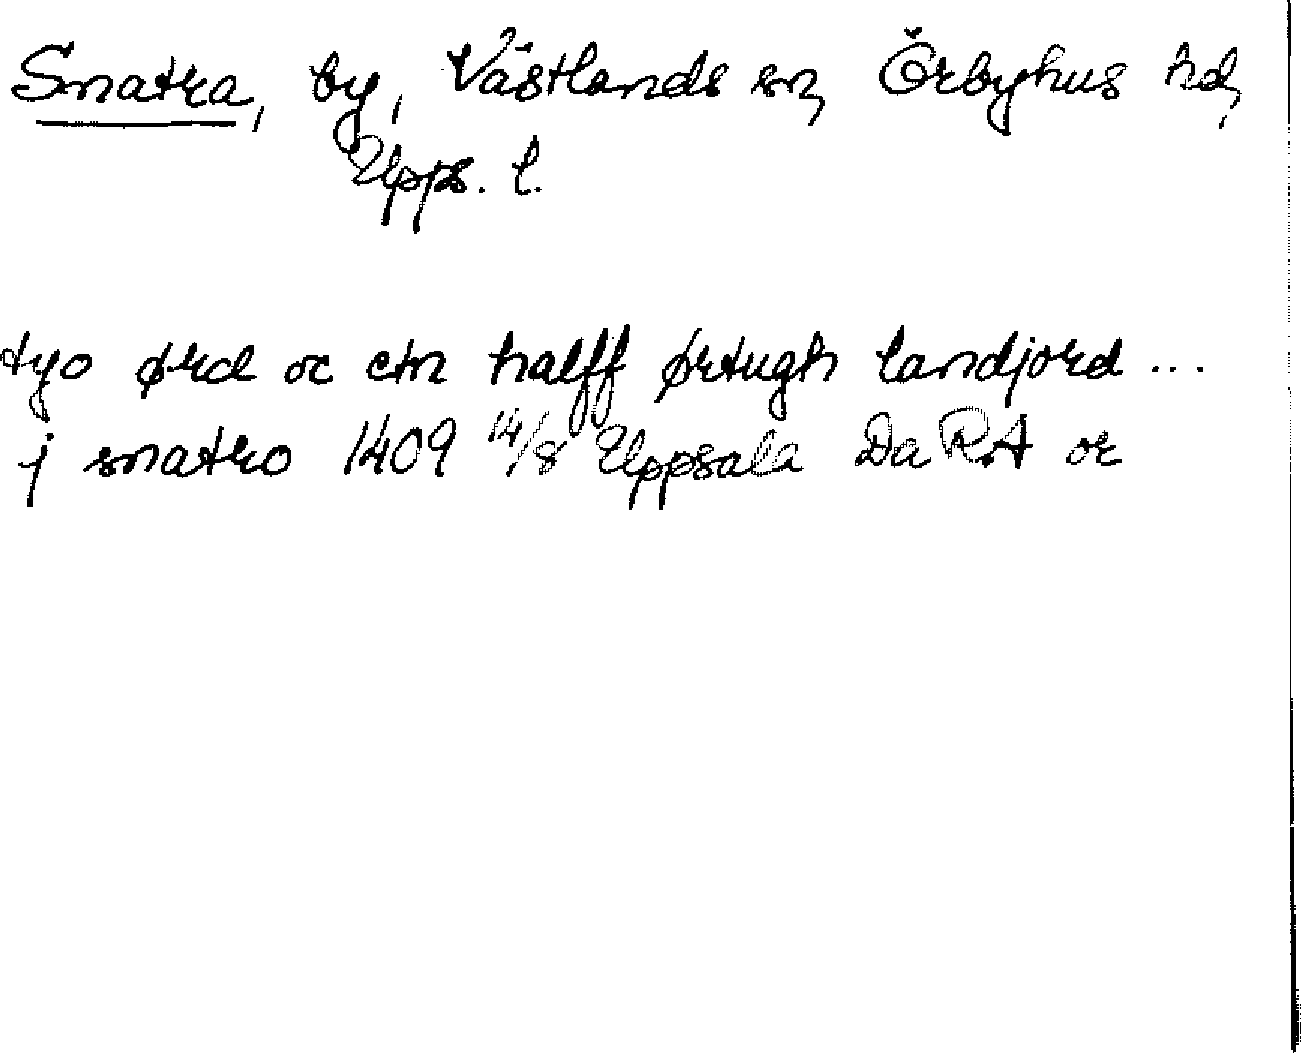 Snatra, by, Västlands sn, Örbyhus hd,
Upps. l.
tyo øræ oc en halff ørtugh landjord ...
j snatro 1409 14/8 Uppsala Da RA or